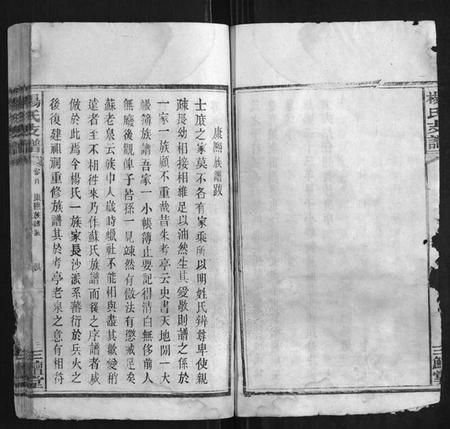 楊氏支譜
三鱣堂
康熙族譜跋
士庶之家莫不各有家乘所以明姓氏辨尊卑使親
疎長幼相接相維足以油然生其愛敬則譜之係於
一家一族顧不重哉昔朱考亭云史書天地閒一大
帳簿族譜吾家一小帳簿止要記得清白無侈前人
無廢後觀俾子若孫一見竦然有做法有懲戒足矣
蘇老泉云族中人歲時蠟社不能相與盡其歡愛稍
遠者至不相往來乃作蘇氏族譜而後之序譜者咸
倣於此焉今楊氏一族家長沙派系蕃衍於兵火之
後復建祖祠重修族譜其於考亭老泉之意有相符
楊氏支譜
卷首
康熙族譜跋
三鱣堂